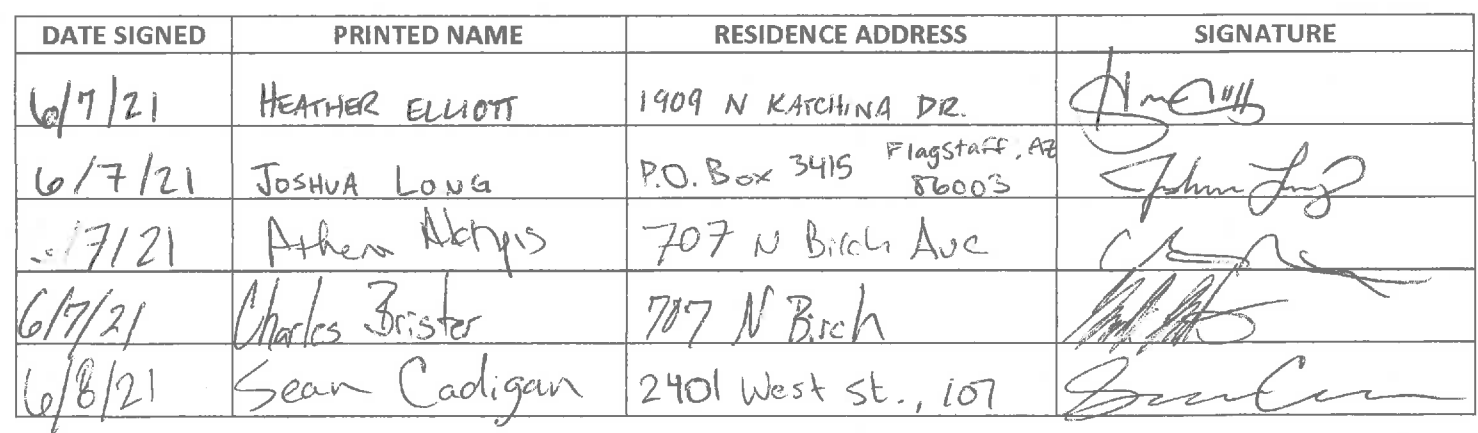 DATE SIGNED PRINTED NAME RESIDENCE ADDRESS SIGNATURE
6/7/21 HEATHER ELLIOTT 1909 N KATCHINA DR.
6/7/21 JOSHUA LONG P.O. Box 3415 Flagstaff, AZ 86003 Joshua Long
/7/21 Athena 707 N Birch Ave
6/7/21 Charles Brister 707 N Birch
6/8/21 Sean Cadigan 2401 West St., 107